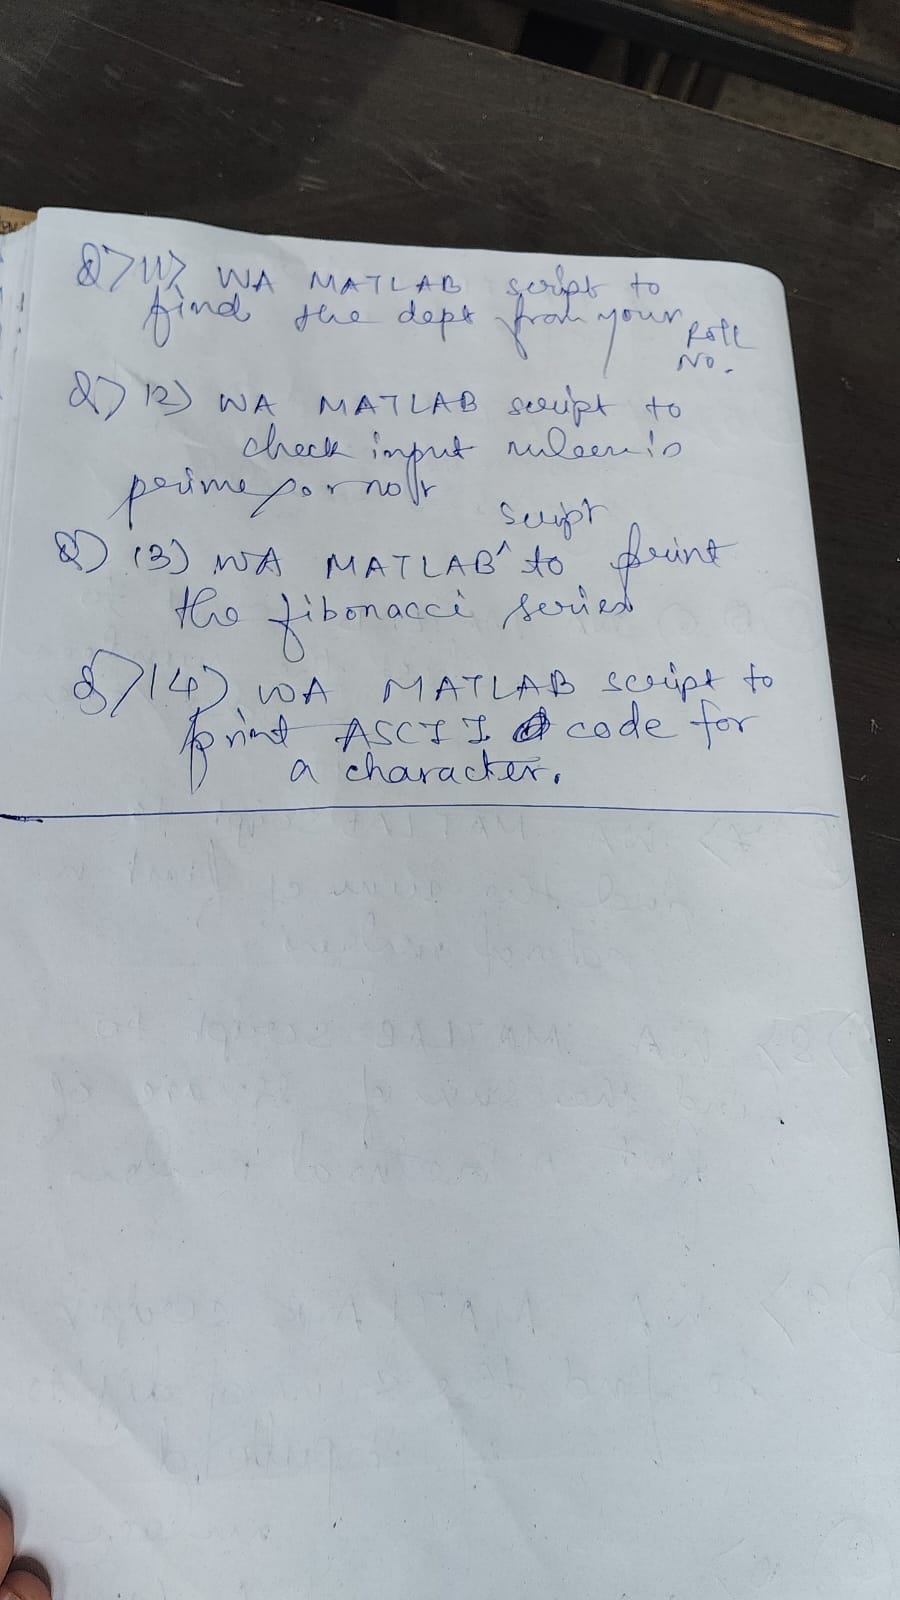 Q>11> WA MATLAB script to
find the dept from your Roll
No.
Q) 12) WA MATLAB script to
check input is
prime or not
script
Q) 13) WA MATLAB^ to print
the fibonacci series
Q) 14) WA MATLAB script to
print ASCII code for
a character.